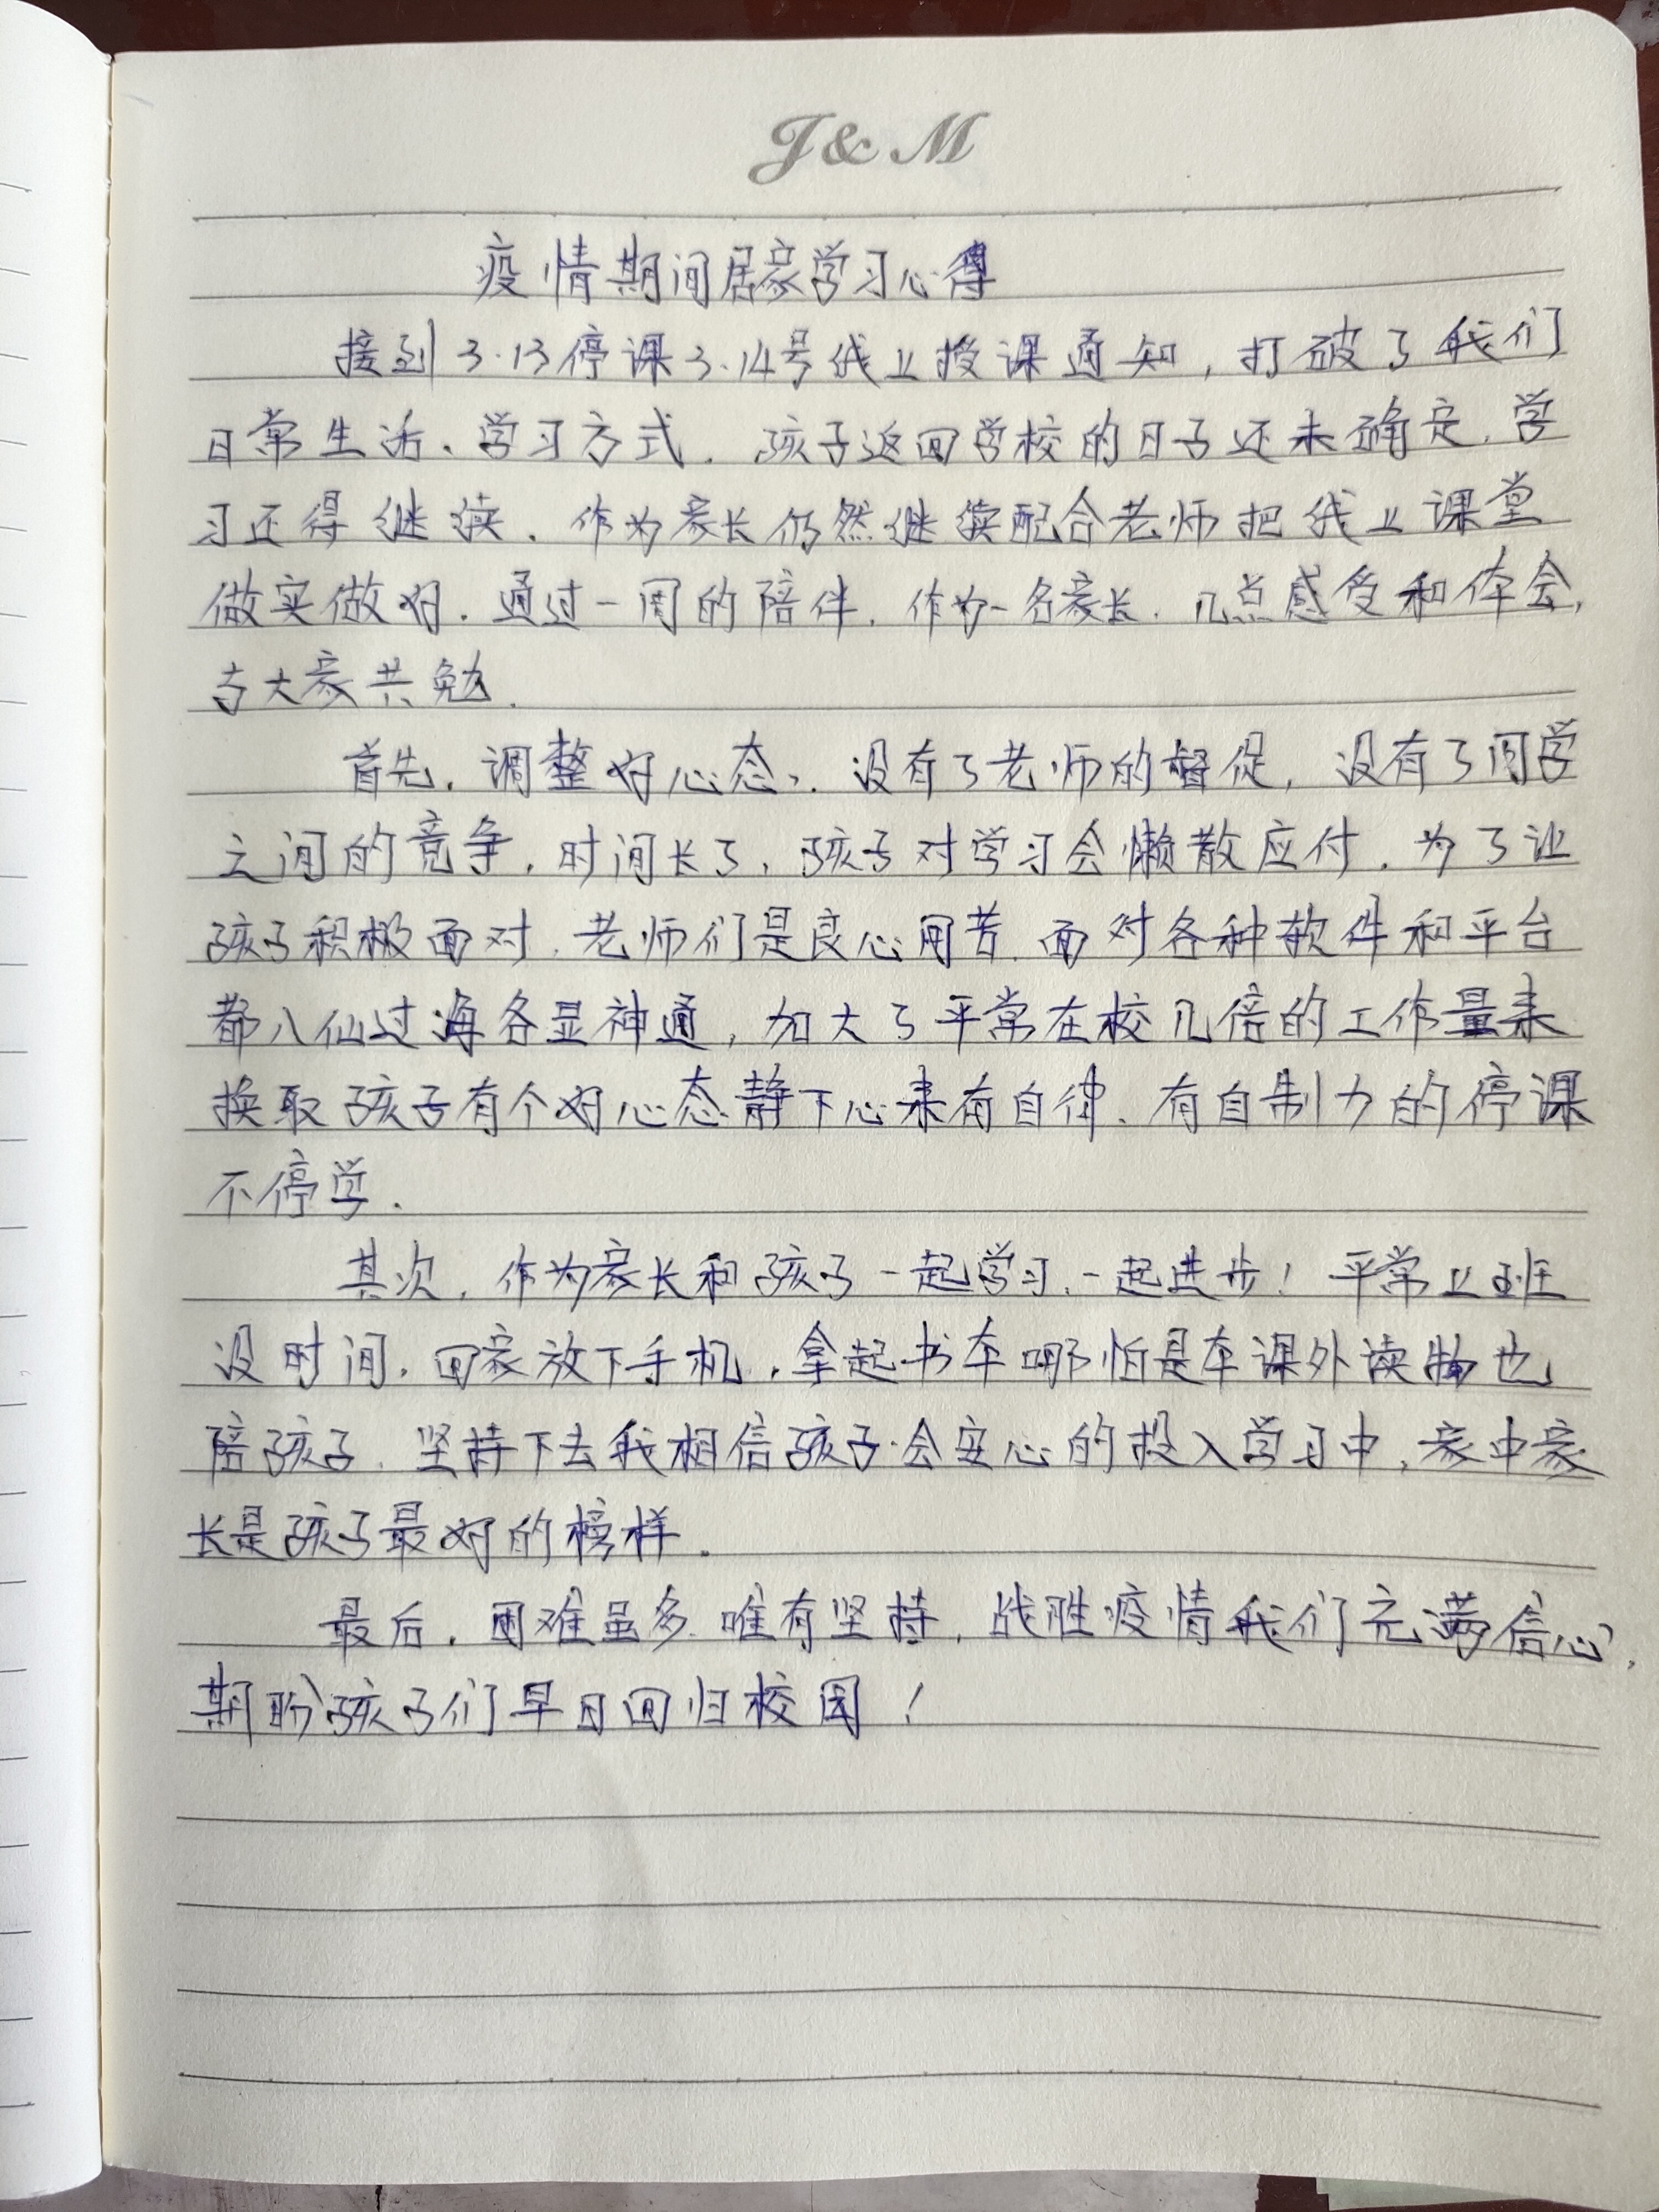 J&M
疫情期间居家学习心得
接到3.13停课3.14号线上授课通知，打破了我们
日常生活、学习方式．孩子返回学校的日子还未确定．学
习还得继续．作为家长仍然继续配合老师把线上课堂
做实做好．通过一周的陪伴．作为一名家长．几点感受和体会，
与大家共勉．
首先．调整好心态、．没有了老师的督促，没有了同学
之间的竞争．时间长了，孩子对学习会懒散应付．为了让
孩子积极面对．老师们是良心用苦．面对各种软件和平台
都八仙过海各显神通，加大了平常在校几倍的工作量来
换取孩子有个好心态静下心来有自律．有自制力的停课
不停学．
其次．作为家长和孩子一起学习．一起进步！平常上班
没时间．回家放下手机．拿起书本哪怕是本课外读物也
陪孩子．坚持下去我相信孩子会安心的投入学习中．家中家
长是孩子最好的榜样．
最后．困难虽多．唯有坚持．战胜疫情我们充满信心，
期盼孩子们早日回归校园！